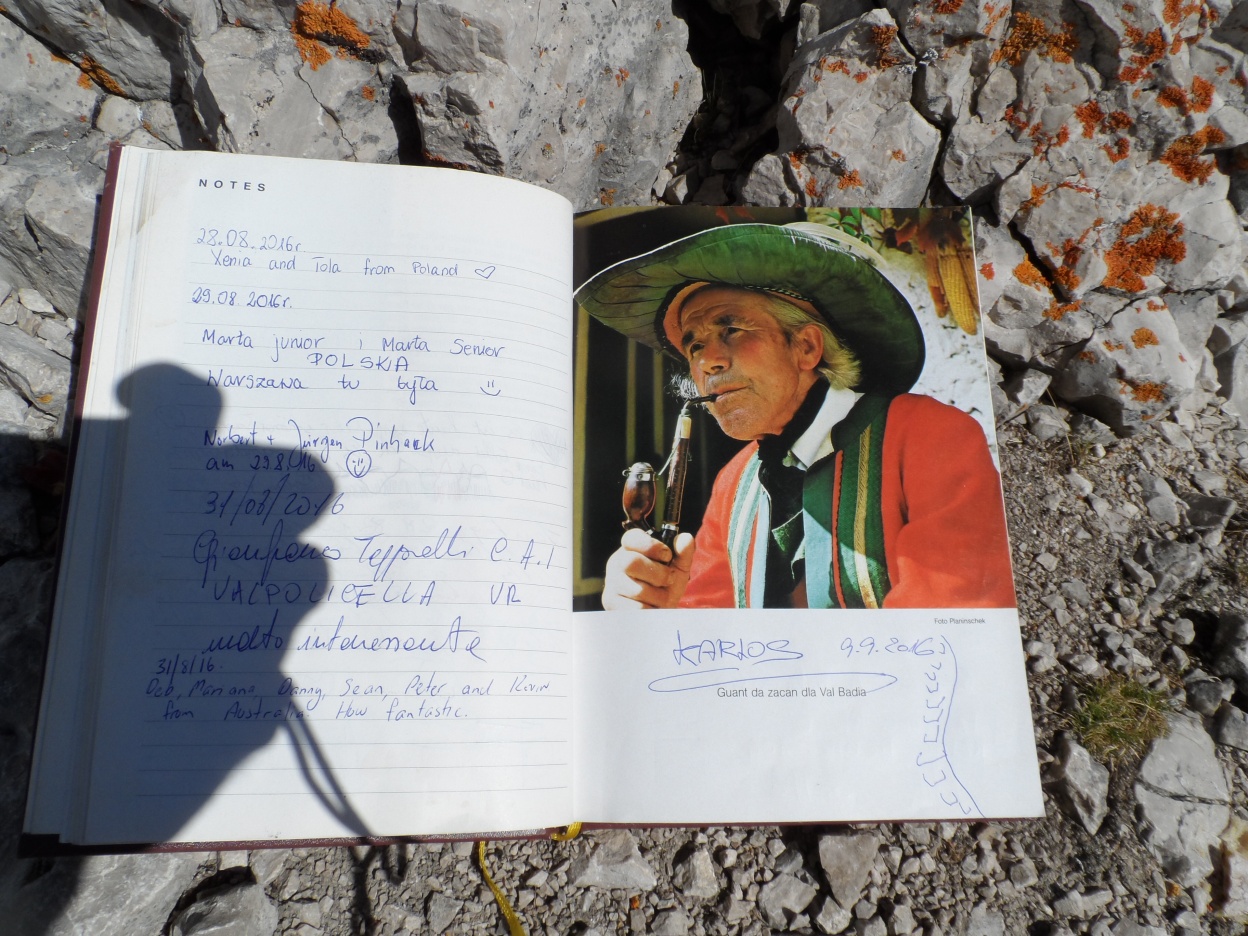 NOTES
28.08.2016r.
Xenia and Tola from Poland ♡
29.08.2016r.
Marta junior i Marta Senior
POLSKA
Warszawa tu była
Norbert + Jürgen
am 29.8.16
31/08/2016
C.A.I
VALPOLICELLA VR
molto interessante
31/8/16.
Deb, Mariana, Danny, Sean, Peter, and Kevin
from Australia. How fantastic.
Foto Planinschek
KARLOS 9.9.2016
Guant da zacan dla Val Badia